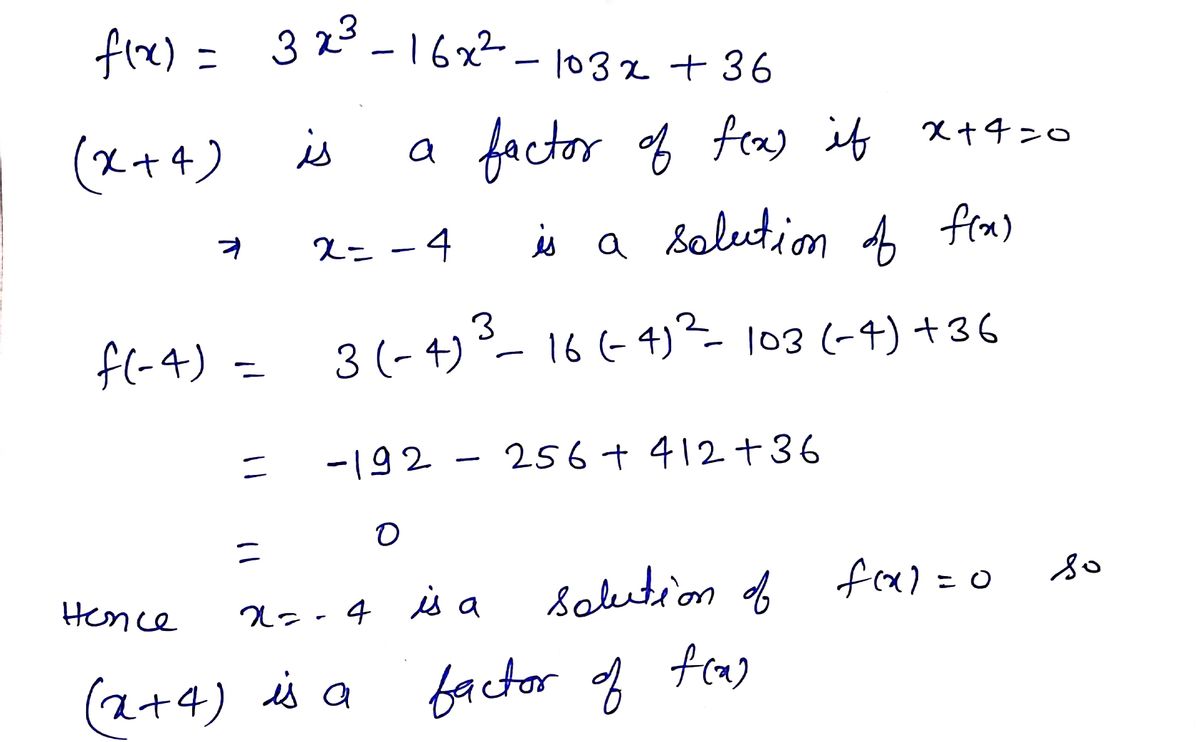 f(x) = 3x³ - 16x² - 103x + 36
(x+4) is a factor of f(x) if x+4=0
⇒ x = -4 is a solution of f(x)
f(-4) = 3(-4)³ - 16(-4)² - 103(-4) + 36
= -192 - 256 + 412 + 36
= 0
Hence x = -4 is a solution of f(x) = 0 so
(x+4) is a factor of f(x)